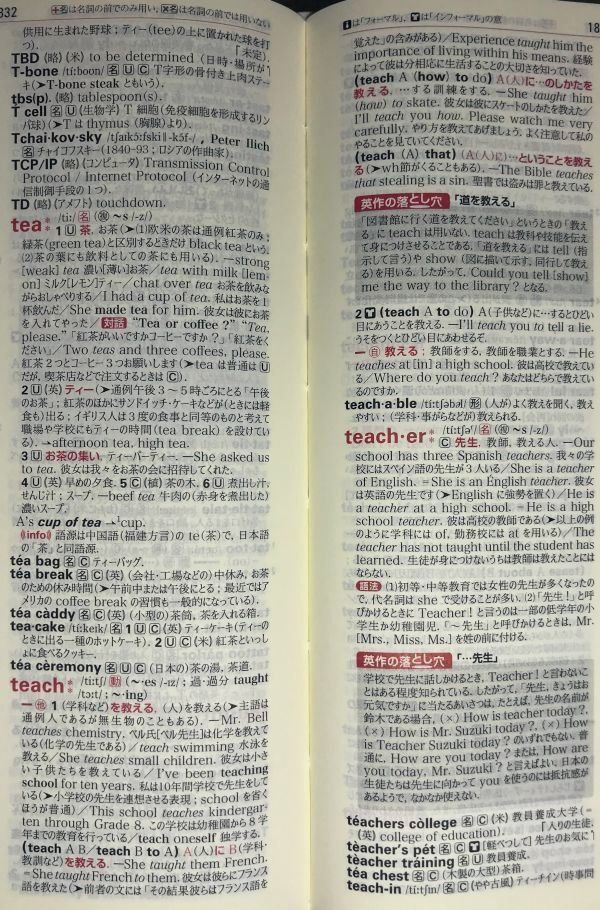 832 ＋名は名詞の前でのみ用い,×名は名詞の前では用いない
供用に生まれた野球；ティー(tee)の上に置かれた球を打つ).
TBD (略) (米) to be determined (日時・場所が「未定」).
T-bone /tíːboʊn/ 名 U C T字形の骨付き上肉ステーキ(➤T-bone steak ともいう).
tbs(p). (略) tablespoon(s).
T cell 名 U (生物学) T細胞(免疫細胞を形成するリンパ球)(➤T は thymus (胸腺)より).
Tchai·kov·sky /tʃaɪkɔ́ːfski ǁ -kɔ́f-/, Peter Ilich
名 チャイコフスキー(1840-93；ロシアの作曲家).
TCP/IP (略) (コンピュータ) Transmission Control
Protocol / Internet Protocol (インターネットの通
信制御手段の1つ).
TD (略) (アメフト) touchdown.
tea /tíː/ 名 (複 ～s /-z/)
1 U 茶, お茶(➤(1)欧米の茶は通例紅茶のみ；
緑茶(green tea)と区別するときだけ black tea という.
(2)茶の葉にも飲料としての茶にも用いる). —strong
[weak] tea 濃い[薄い]お茶／tea with milk [lem-
on] ミルク[レモン]ティー／chat over tea お茶を飲みな
がらおしゃべりする／I had a cup of tea. 私はお茶1
杯飲んだ／She made tea for him. 彼女は彼にお茶
を入れてやった／対話 “Tea or coffee?” “Tea,
please.” 「紅茶がいいですかコーヒーですか？」「紅茶をく
ださい」／Two teas and three coffees, please.
紅茶2つとコーヒー3つお願いします(➤tea は普通は U
だが, 喫茶店などで注文するときは C).
2 U (英) ティー(➤通例午後3～5時ごろにとる「午後
のお茶」；紅茶のほかにサンドイッチ・ケーキなどが(ときには軽
食も)出る；イギリス人は3度の食事と同等のものと考えて
職場や学校にもティーの時間(tea break)を設けてい
る). —afternoon tea, high tea.
3 U お茶の集い, ティーパーティー. —She asked us
to tea. 彼女は我々をお茶の会に招待してくれた.
4 U (英) 早めの夕食. 5 C (植) 茶の木. 6 U 煮出し汁,
せんじ汁；スープ. —beef tea 牛肉の(赤身を煮出した)
濃いスープ.
A's cup of tea → cup.
info 語源は中国語(福建方言)の te(茶)で, 日本語
の「茶」と同語源.
téa bag 名 C ティーバッグ.
téa break 名 C (英) (会社・工場などの)中休み, お茶
のための休み時間(➤午前中または午後にとる；最近ではア
メリカの coffee break の習慣も一般的になっている).
téa càddy 名 C (英) (小型の)茶筒, 茶を入れる箱.
tea·cake /tíːkeɪk/ 名 1 U C (英) ティーケーキ(ティー
のときに出る一種のホットケーキ). 2 U C (米) 紅茶といっし
ょに食べるクッキー.
téa cèremony 名 U C (日本の)茶の湯, 茶道.
teach /tíːtʃ/ 動 (～es /-ɪz/；過・過分 taught
/tɔ́ːt/；～ing)
— 他 1 (学科など)を教える, (人)を教える(➤主語
は通例人であるが無生物のこともある). —Mr. Bell
teaches chemistry. ベル氏[ベル先生]は化学を教えて
いる(化学の先生である)／teach swimming 水泳を
教える／She teaches small children. 彼女は小さ
い子供たちを教えている／I've been teaching
school for ten years. 私は10年間学校で先生をして
いる(➤小学校の先生を連想させる表現；school を省く
ほうが普通)／This school teaches kindergar-
ten through Grade 8. この学校は幼稚園から8学
年までの教育を行っている／teach oneself 独学する.
(teach A B／teach B to A) A(人)に B(学科・
教訓など)を教える. —She taught them French.
=She taught French to them. 彼女は彼らにフランス
語を教えた(➤前者の文には「その結果彼らはフランス語を
は「フォーマル」, は「インフォーマル」の意
覚えた」の含みがある)／Experience taught him the
importance of living within his means. 経験
によって彼は分相応に生活することの大切さを知っていた.
(teach A (how) to do) A(人)に…のしかたを
教える, …する訓練をする. —She taught him
(how) to skate. 彼女は彼にスケートのしかたを教えた／
I'll teach you how. Please watch me very
carefully. やり方を教えてあげましょう. よく注意して私の
やることを見ていてください.
(teach (A) that) (A(人)に)…ということを教え
る(➤wh節がくることもある). —The Bible teaches
that stealing is a sin. 聖書では盗みは罪と教えている.
英作の落とし穴 「道を教える」
「図書館に行く道を教えてください」というときの「教え
る」に teach は用いない. teach は教科や技能を伝え
て身につけさせることである. 「道を教える」には tell (指
示して言う)や show (図に描いて示す, 同行して教え
る)を用いる. したがって, Could you tell [show]
me the way to the library? となる.
2 (teach A to do) A(子供など)に…するとひど
い目にあうことを教える. —I'll teach you to tell a lie.
うそをつくとひどい目にあわせるぞ.
— 自 教える；教師をする, 教師を職業とする. —He
teaches at [in] a high school. 彼は高校で教えて
いる／Where do you teach? あなたはどちらで教えて
いるのですか.
teach·a·ble /tíːtʃəbəl/ 形 (人が)よく教えを聞く, 教え
やすい；(学科・事がらなどが)教えられる.
teach·er /tíːtʃər/ 名 (複 ～s /-z/)
C 先生, 教師, 教える人. —Our
school has three Spanish teachers. 我々の学
校にはスペイン語の先生が3人いる／She is a teacher
of English. =She is an English teacher. 彼女
は英語の先生です(➤English に強勢を置く)／He is
a teacher at a high school. =He is a high
school teacher. 彼は高校の教師である(➤以上の例
のように学校には of, 勤務校には at を用いる)／The
teacher has not taught until the student has
learned. 生徒が身につけないうちは教師は教えたことには
ならない.
語法 (1)初等・中等教育では女性の先生が多くなったの
で, 代名詞は she で受けることが多い. (2)「先生！」と呼
びかけるときに Teacher! と言うのは一部の低学年の小
学生か幼稚園児. 「～先生」と呼びかけるときは, Mr.
[Mrs., Miss, Ms.] を姓の前に付ける.
英作の落とし穴 「…先生」
学校で先生に話しかけるとき, Teacher! と言わないこ
とはある程度知られている. したがって, 「先生, きょうはお
元気ですか」に当たるあいさつは, たとえば, 先生の名前が
鈴木である場合, (×) How is teacher today?,
(×) How is Mr. Suzuki today?, (×) How
is Teacher Suzuki today? のいずれでもない. 普
通に, How are you today? または, How are
you today, Mr. Suzuki? と言えばよい. 日本の
生徒たちは先生に向かって you を使うのには抵抗感が
あるようで, なかなか使えない.
téachers còllege 名 C (米) 教員養成大学(=
(英) college of education). 「入りの生徒.
tèacher's pét 名 C [軽べつして] 先生のお気に
tèacher tráining 名 U 教員養成.
téa chest 名 C (木製の大型)茶箱.
teach-in /tíːtʃɪn/ 名 C (やや古風) ティーチイン(時事問